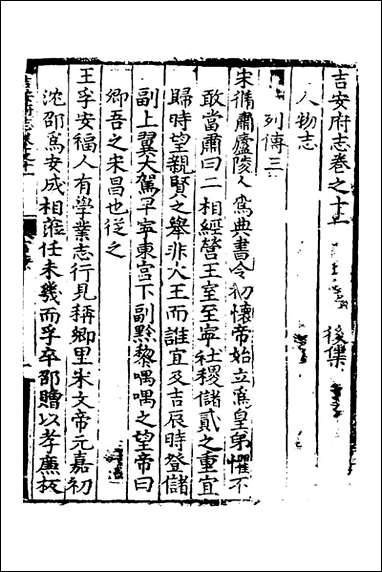 吉安府志卷之十一 後集
人物志
列傳三
宋脩肅廬陵人爲典書令初懷帝始立爲皇弟懼不
敢當肅曰二相經營王室至寧社稷儲貳之重宜
歸時望親賢之舉非大王而誰宜及吉辰時登儲
副上翼大駕早寧東宮下副黔黎喁喁之望帝曰
卿吾之宋昌也從之
王孚安福人有學業志行見稱鄉里宋文帝元嘉初
沈邵爲安成相蒞任未幾而孚卒邵贈以孝廉板